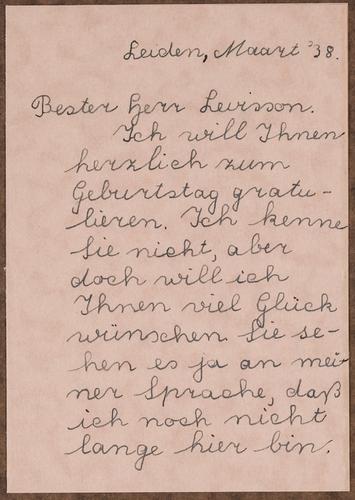 Leiden, Maart '38.
Bester Herr Levisson.
Ich will Ihnen
herzlich zum
Geburtstag gratu-
lieren. Ich kenne
Sie nicht, aber
doch will ich
Ihnen viel Glück
wünschen. Sie se-
hen es ja an mei-
ner Sprache, daß
ich noch nicht
lange hier bin.